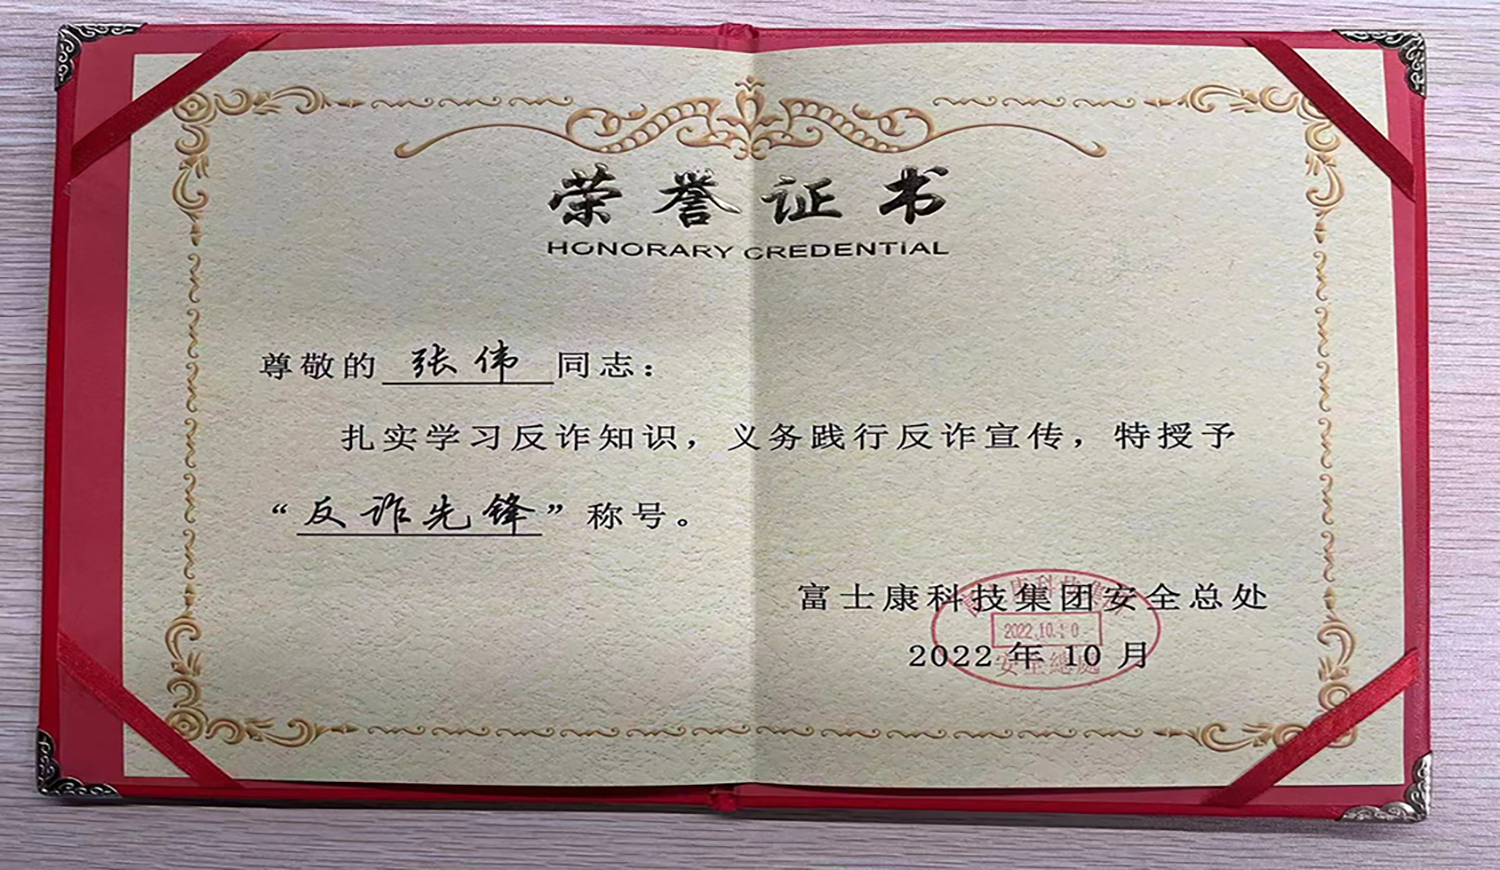 荣誉证书
HONORARY CREDENTIAL
尊敬的 张伟 同志：
扎实学习反诈知识，义务践行反诈宣传，特授予
“反诈先锋”称号。
富士康科技集团安全总处
2022 年 10 月
科技集
2022.10.10
安全總處